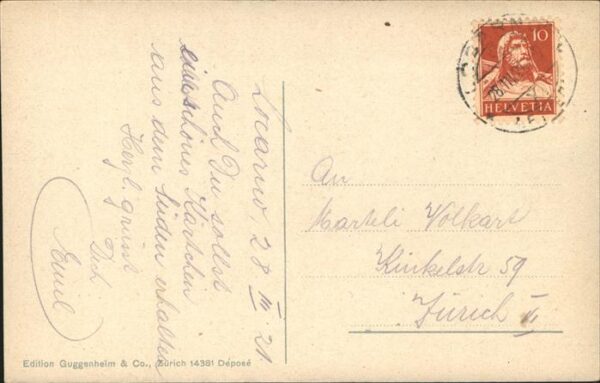 Locarno, 28 III 21
Auch Du sollst
ein schönes Kärtchen
aus dem Süden erhalten
Herzl. grüsst
Dich
Emil
10
HELVETIA
An
Marteli Volkart
Kinkelstr 59
Zürich
Edition Guggenheim & Co., Zürich 14381 Déposé